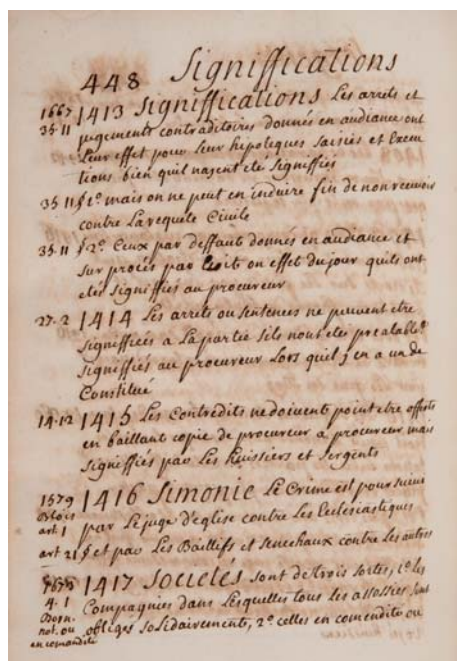 448 Signiffications
1667 1413 Signiffications Les arrets et
35-11 jugements contraditoires donnés en audiance ont
Leur effet pour leur hipoteques saisies et Execu
tions bien quil najent ete signiffiés
35 11 § 1º mais on ne peut en induire fin de non recevoir
contre La requete Civile
35-11 § 2º Ceux par deffaut donnés en audiance et
sur procés par ecrit on effet du jour quils ont
eté signiffiés au procureur
27-2 1414 Les arrets ou sentences ne peuvent etre
signiffiées a La partie sils nont eté prealablt
signiffiés au procureur Lors quil j en a un de
Constitué
14-12 1415 Les contredits ne doivent point etre offerts
en baillant copie de procureur a procureur mais
signiffiés par Les huissiers et sergents
1579 1416 Simonie Le Crime est poursuivi
Blois art 1 par Le juge d'eglise contre Les Ecclesiastiques
art 21 § et par Les Baillifs et senechaux contre les autres
1673 1417 Societés sont de trois sortes, 1º les
4. 1 Compagnies dans Lesquelles tous les associes sont
Born. not. ou obligés solidairement, 2º celles en comendite ou
en comandite